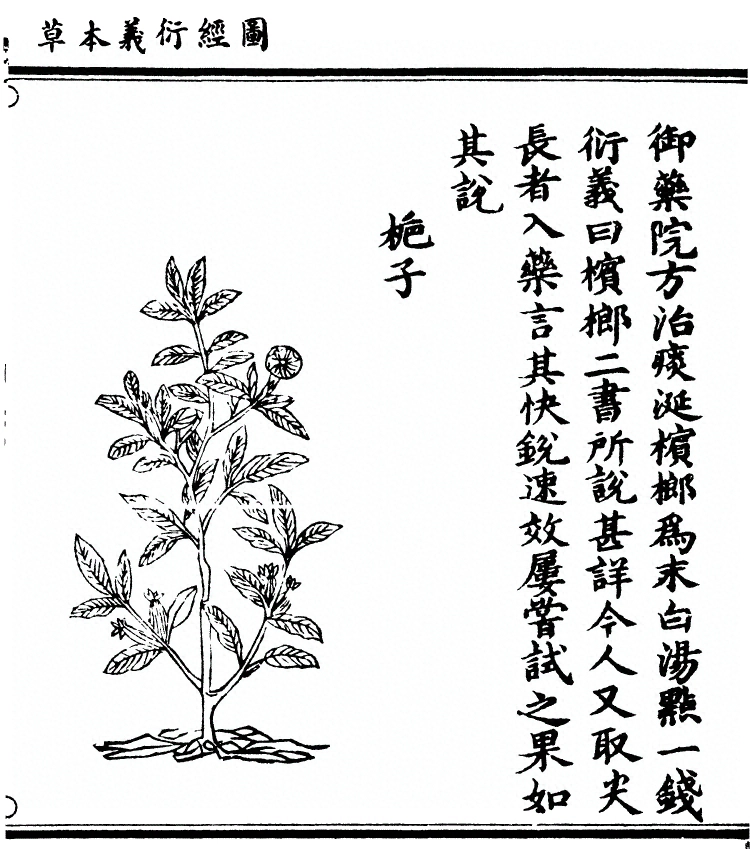 圖經衍義本草
御藥院方治痰涎檳榔爲末白湯點一錢
衍義曰檳榔二書所說甚詳今人又取尖
長者入藥言其快銳速效屢嘗試之果如
其說
梔子